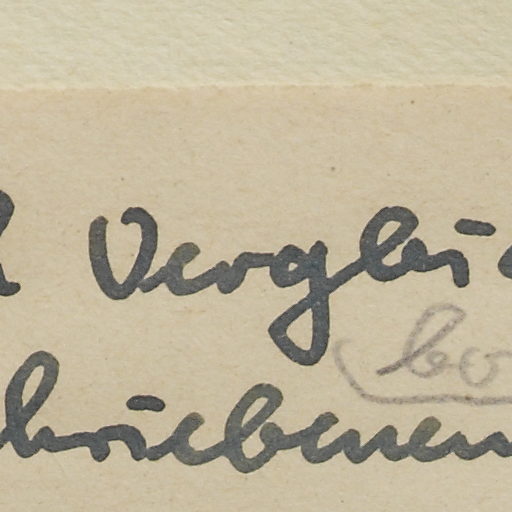 Verglei
bo
hriebenen